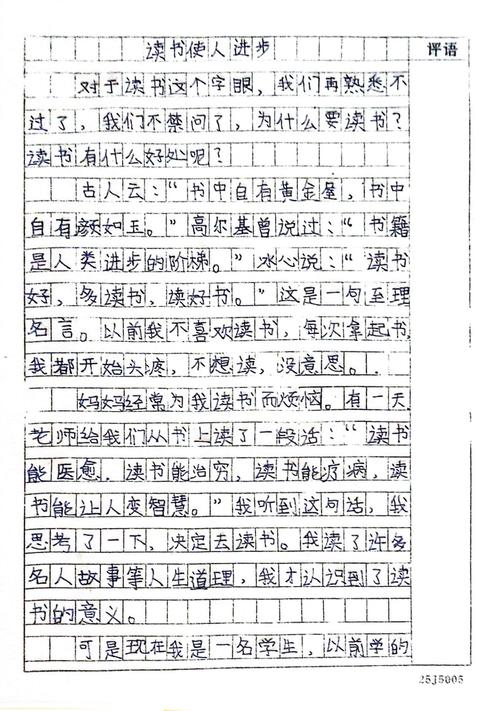 读书使人进步
评语
对于读书这个字眼，我们再熟悉不
过了，我们不禁问了，为什么要读书？
读书有什么好处呢？
古人云：“书中自有黄金屋，书中
自有颜如玉。”高尔基曾说过：“书籍
是人类进步的阶梯。”冰心说：“读书
好，多读书，读好书。”这是一句至理
名言。以前我不喜欢读书，每次拿起书，
我都开始头疼，不想读，没意思。
妈妈经常为我读书而烦恼。有一天
老师给我们从书上读了一段话：“读书
能医愈，读书能治穷，读书能疗病，读
书能让人变智慧。”我听到这句话，我
思考了一下，决定去读书。我读了许多
名人故事等人生道理，我才认识到了读
书的意义。
可是现在我是一名学生，以前学的
25J5005